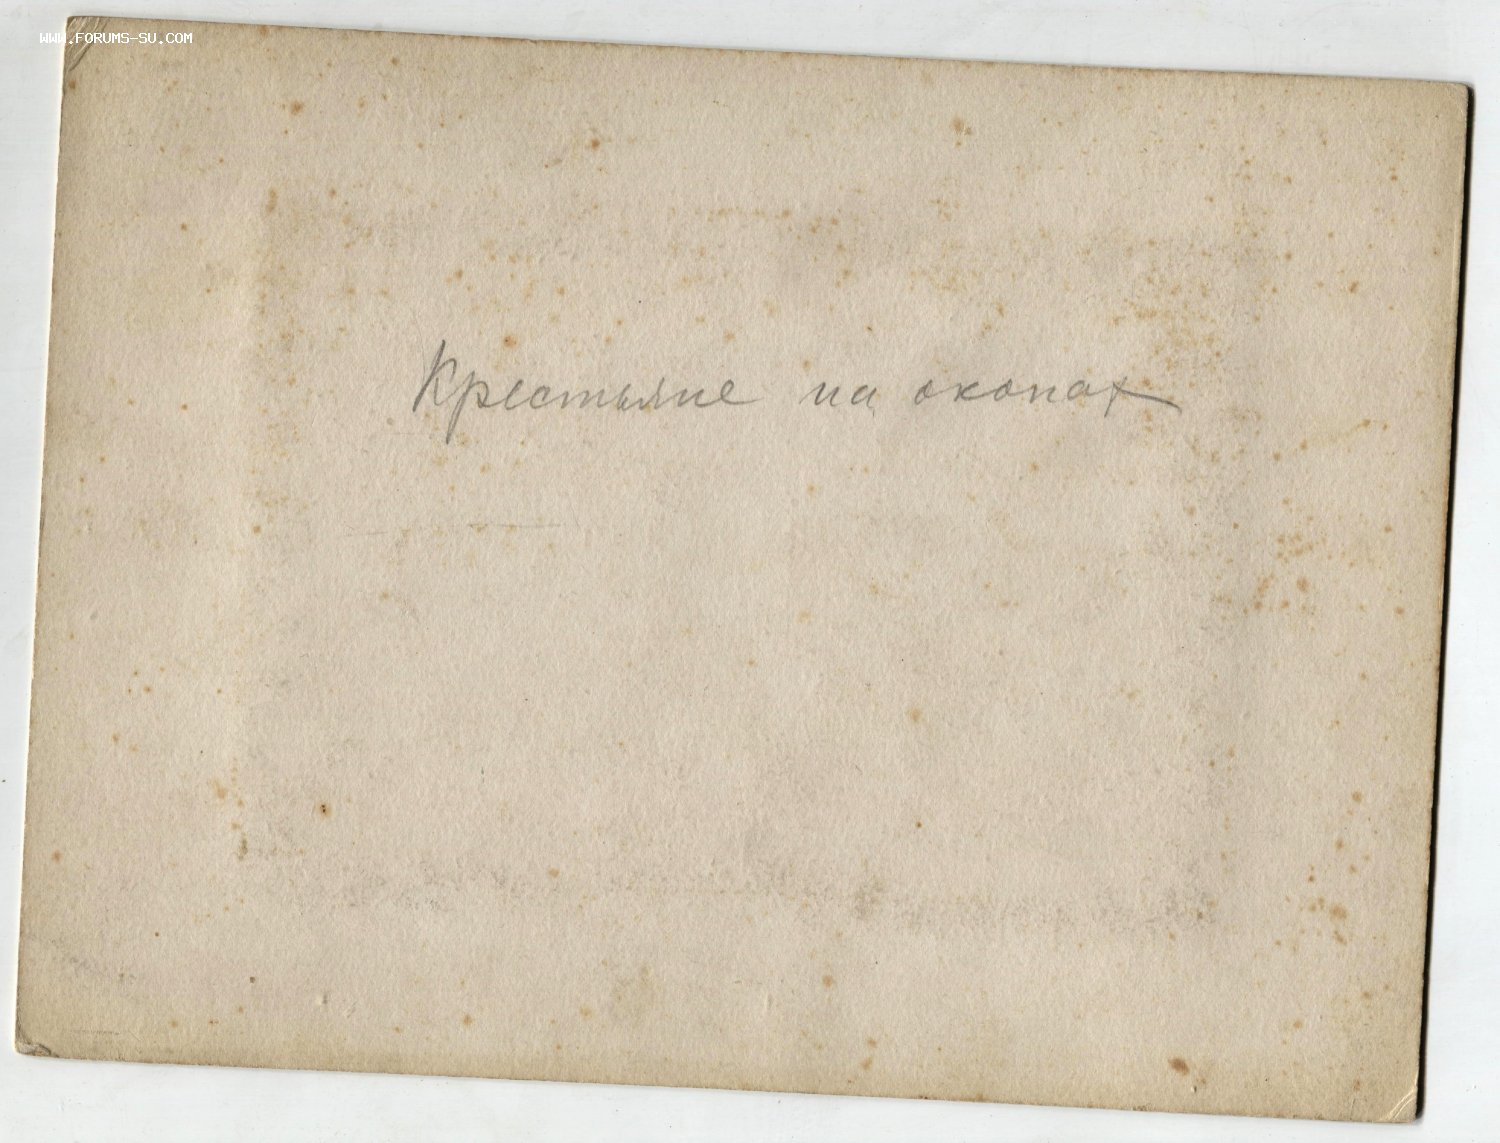 WWW.FORUMS-SU.COM
Крестьяне на окопах